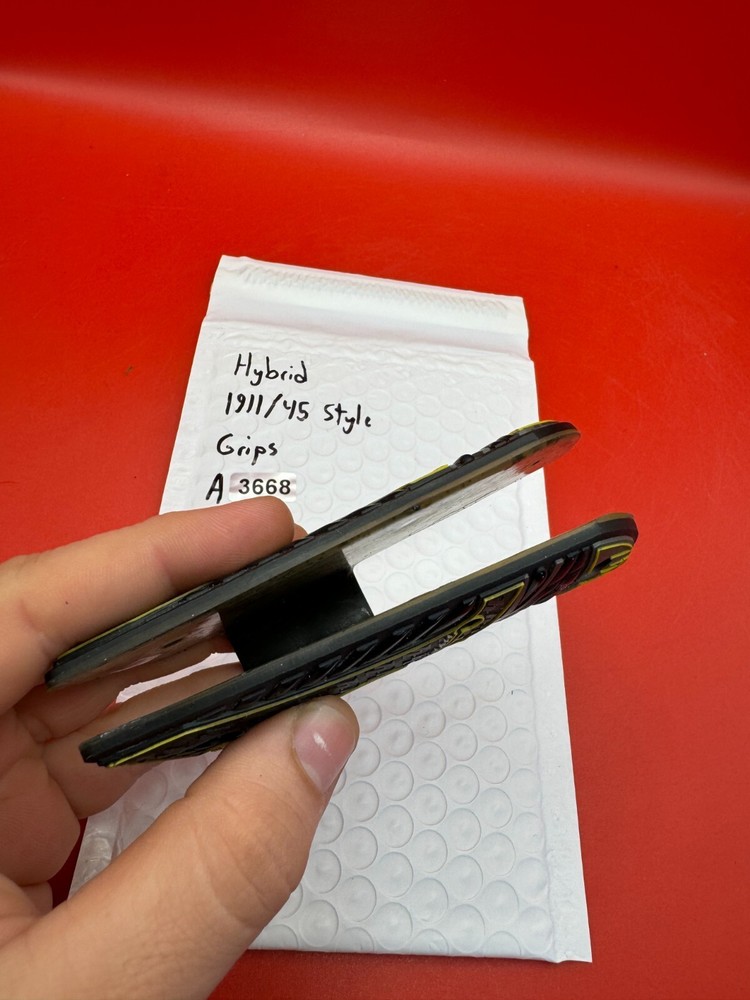 Hybrid
1911/45 Style
Grips
A 3668